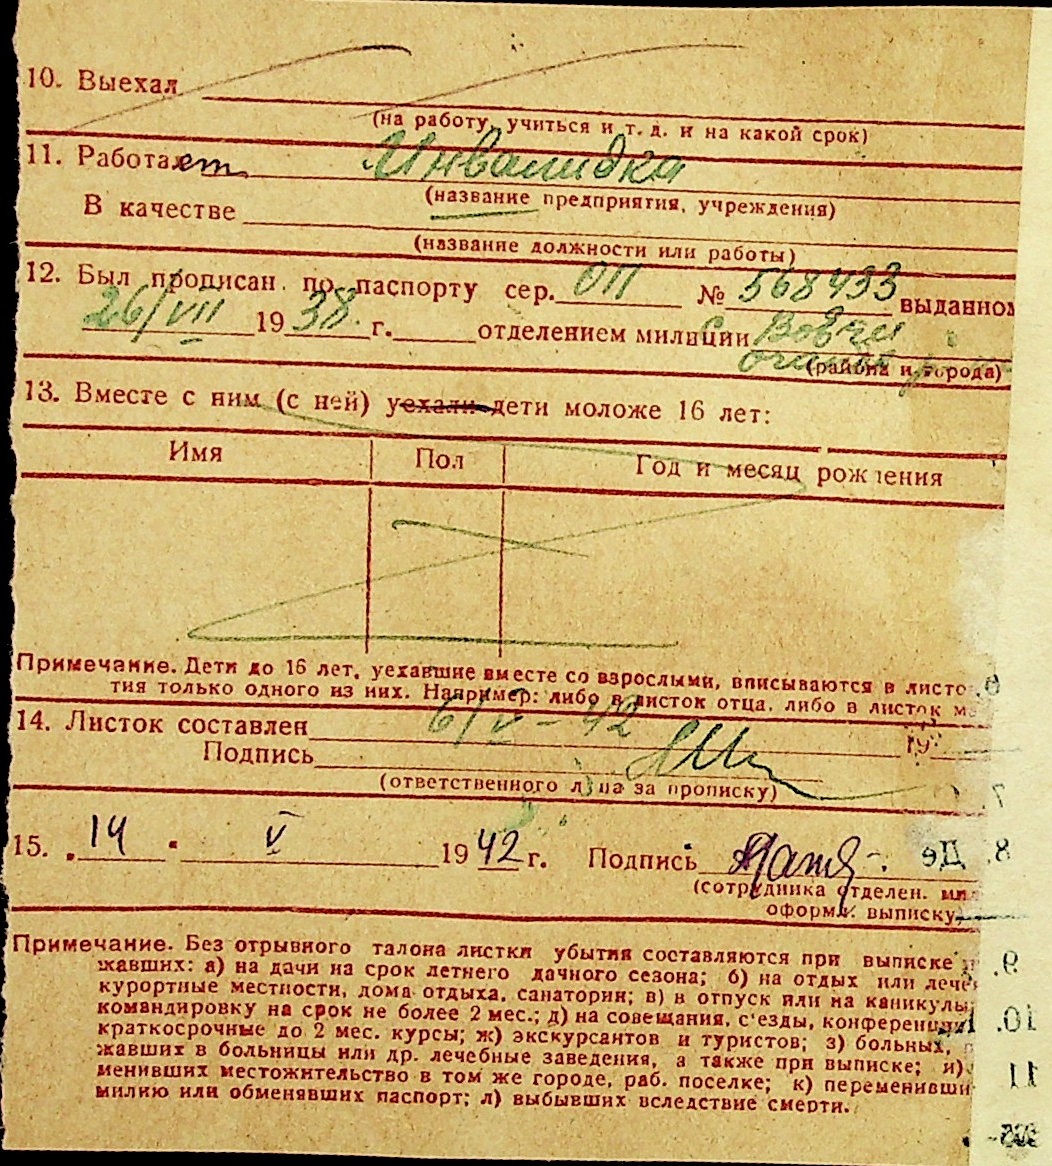 10. Выехал
(на работу, учиться и т. д. и на какой срок)
11. Работает Инвалидка
(название предприятия, учреждения)
В качестве
(название должности или работы)
12. Был прописан по паспорту сер. ОП № 568433 выданном
26/VII 1938 г. отделением милиции
(района и города)
13. Вместе с ним (с ней) уехали дети моложе 16 лет:
Имя Пол Год и месяц рождения
Примечание. Дети до 16 лет, уехавшие вместе со взрослыми, вписываются в листо
тия только одного из них. Например: либо в листок отца, либо в листок м
14. Листок составлен 6/V-42 19
Подпись
(ответственного лица за прописку)
15. 14 V 1942 г. Подпись
(сотрудника отделен. мил
оформ. выписку)
Примечание. Без отрывного талона листки убытия составляются при выписке
жавших: а) на дачи на срок летнего дачного сезона; б) на отдых или лече
курортные местности, дома отдыха, санатории; в) в отпуск или на каникулы;
командировку на срок не более 2 мес.; д) на совещания, с'езды, конференции
краткосрочные до 2 мес. курсы; ж) экскурсантов и туристов; з) больных,
жавших в больницы или др. лечебные заведения, а также при выписке; и)
менивших местожительство в том же городе, раб. поселке; к) переменивши
милию или обменявших паспорт; л) выбывших вследствие смерти.